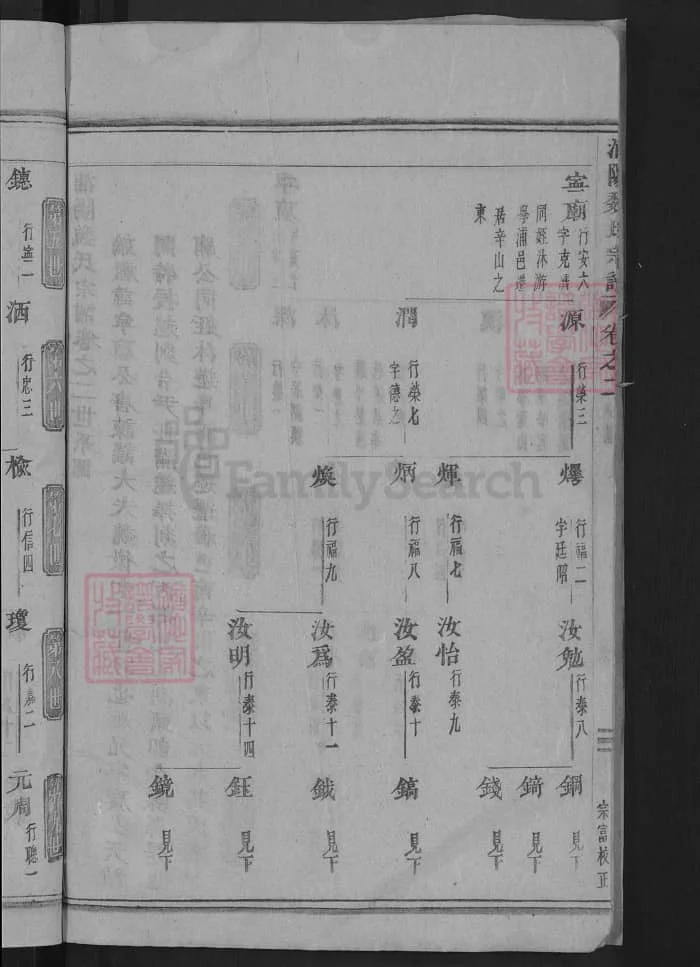 宗譜
卷之二
寧廟
行安六
字克
同姪沐游
學浦邑遷
居辛山之
東
源
行榮三
潤
行榮七
字德之
爆
行福二
字廷昭
輝
行福七
炳
行福八
煥
行福九
汝勉
行泰八
汝怡
行泰九
汝盈
行泰十
汝為
行泰十一
汝明
行泰十四
鍋
見下
錡
見下
錢
見下
鎬
見下
鉞
見下
鈺
見下
鏡
見下
宗富校正
第五世
第六世
第七世
第八世
第九世
鏸
行寧一
洒
行忠三
檢
行信四
瓊
行嘉二
元周
行聰一
FamilySearch